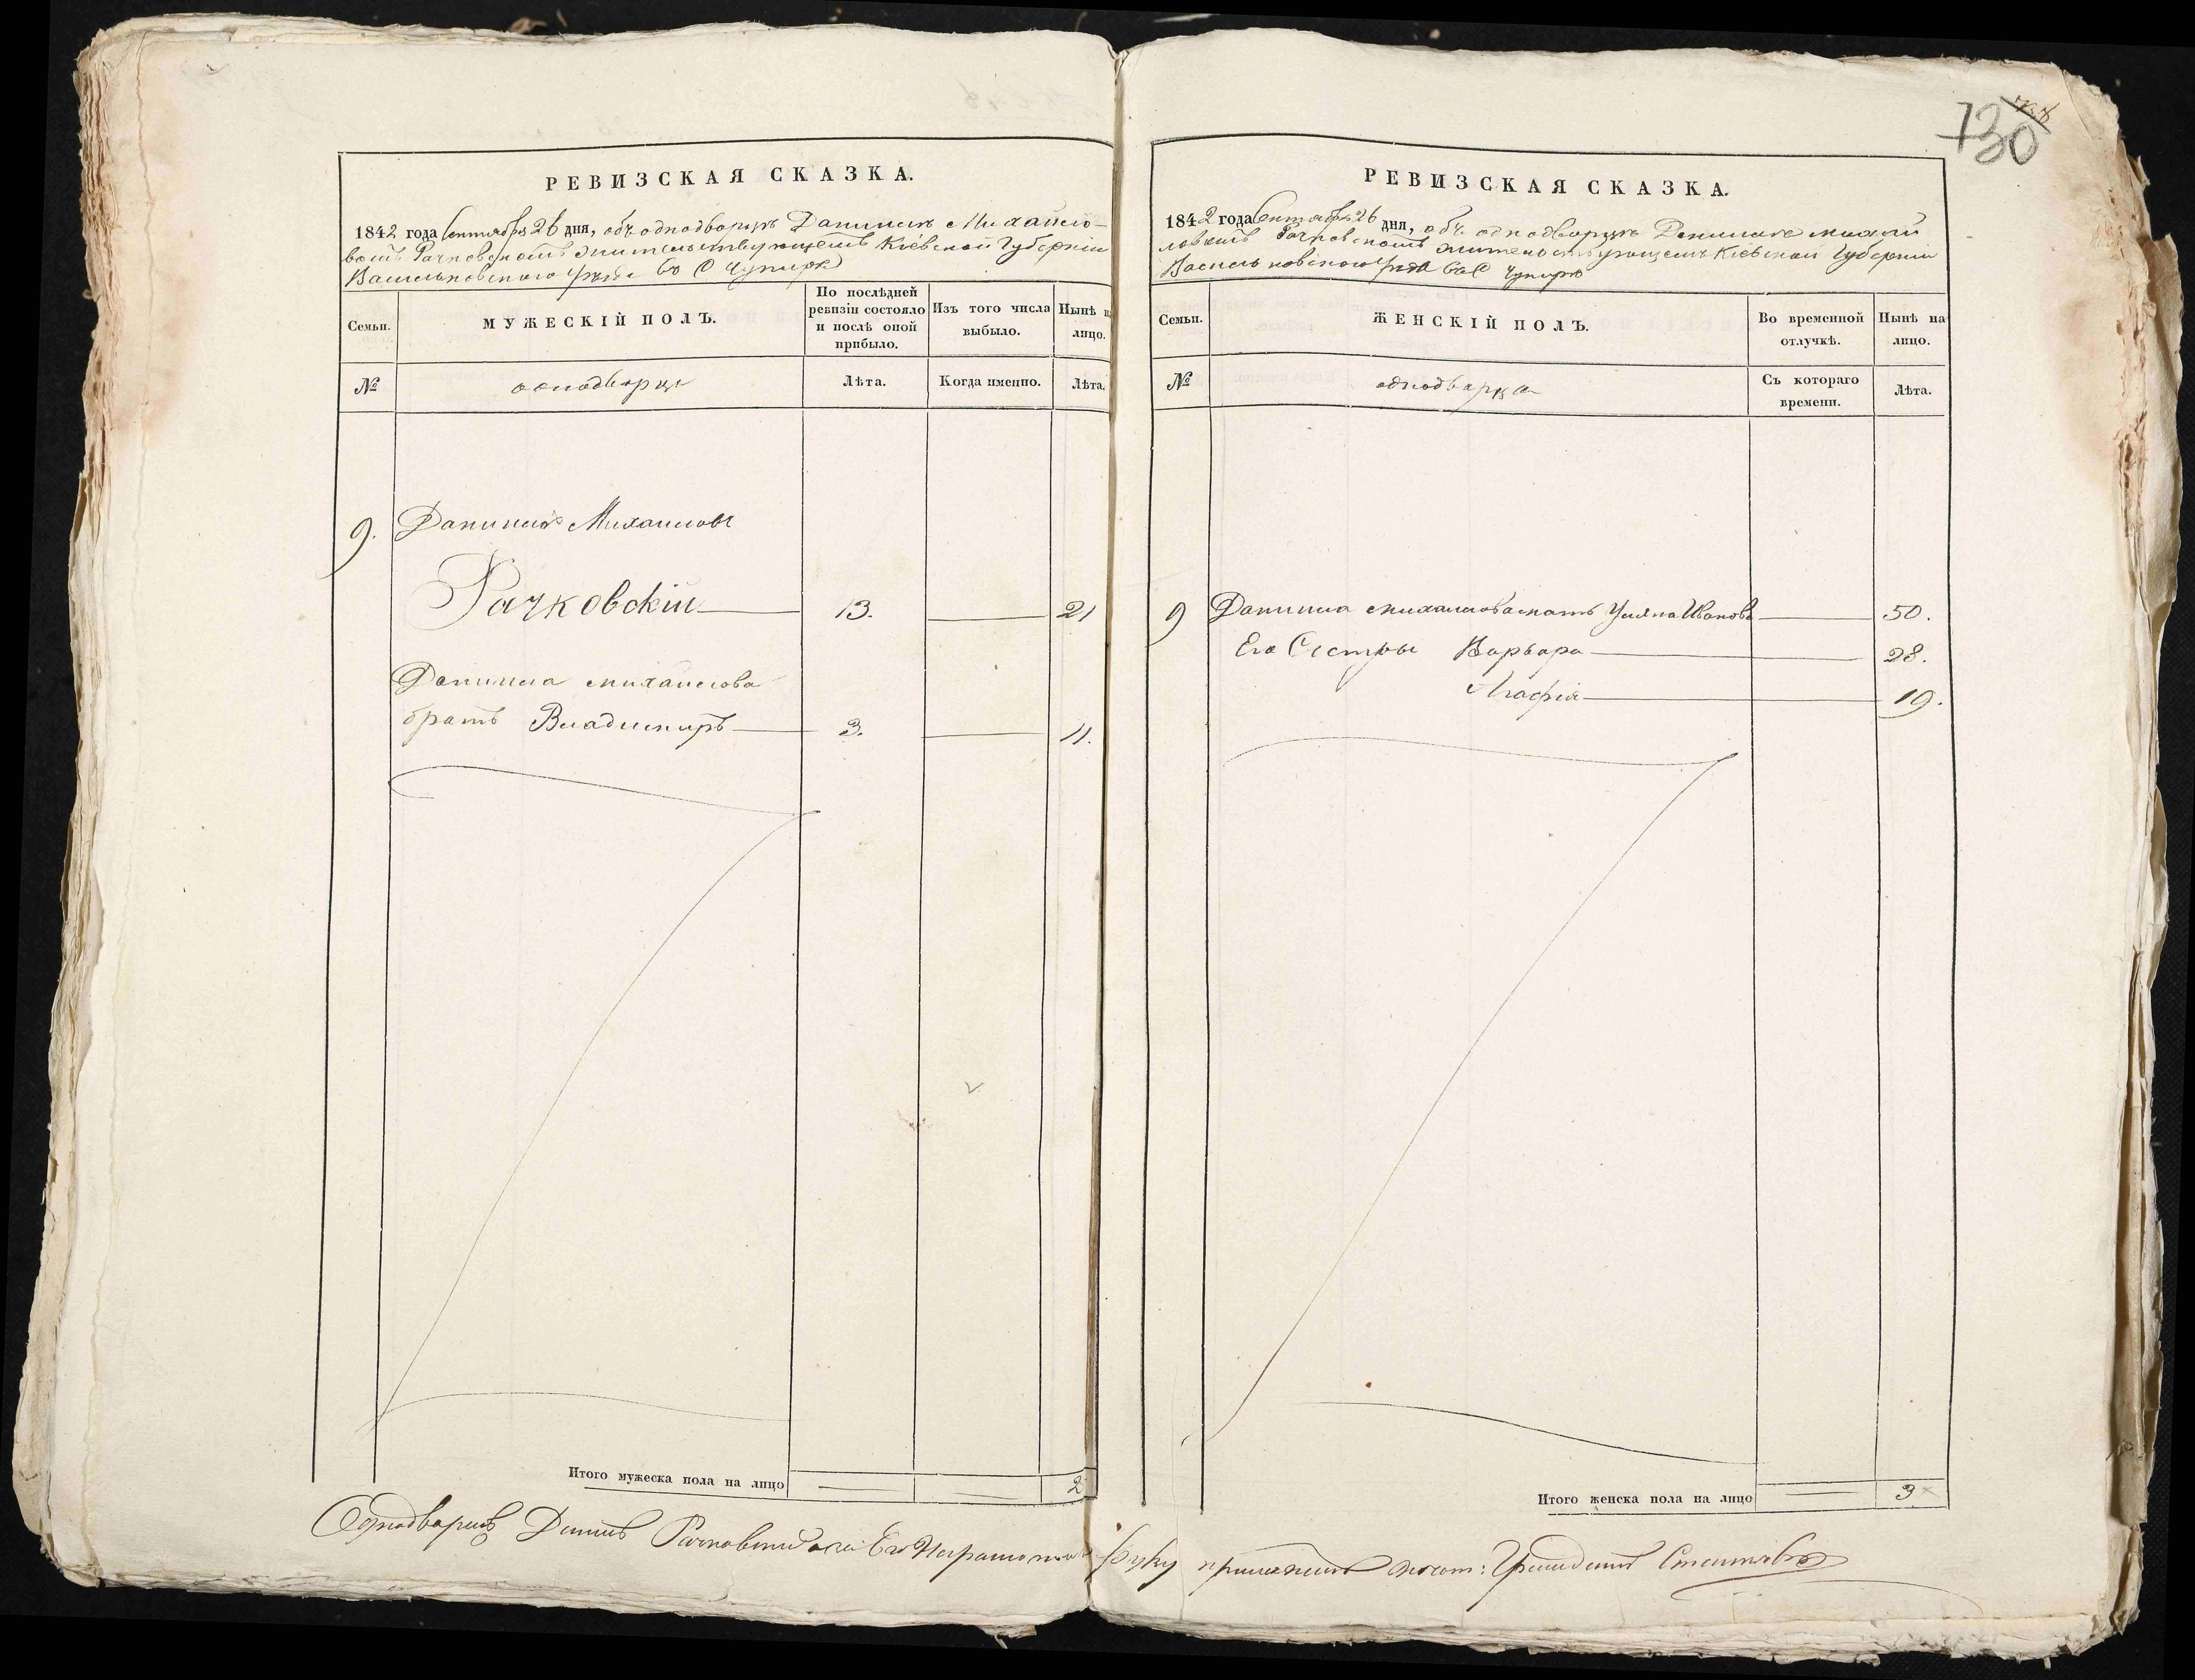 730
РЕВИЗСКАЯ СКАЗКА.
1842 года Сентября 26 дня, объ однодворцѣ Данилѣ Михайло-
вомъ Рачковскомъ жительствующемъ Кіевской Губерніи
Васильковскаго уѣзда въ С Чупирѣ
Семьи.
МУЖЕСКІЙ ПОЛЪ.
По послѣдней ревизіи состояло и послѣ оной прибыло.
Изъ того числа выбыло.
Нынѣ н лицо.
№
однодворцы
Лѣта.
Когда именно.
Лѣта.
9. Данило Михайловъ
Рачковскій 13. 21
Данила Михайлова
братъ Владимиръ 3. 11.
Итого мужеска пола на лицо 2
РЕВИЗСКАЯ СКАЗКА.
1842 года Сентября 26 дня, объ однодворцѣ Данилѣ Михай
ловомъ Рачковскомъ жительствующемъ Кіевской Губерніи
Васильковскаго уѣзда въ С Чупирѣ
Семьи.
ЖЕНСКІЙ ПОЛЪ.
Во временной отлучкѣ.
Нынѣ на лицо.
№
однодворца
Съ котораго времени.
Лѣта.
9 Данила Михайлова мать Уліяна Иванова 50.
Его Сестры Варвара 28.
Агафія 19.
Итого женска пола на лицо 3
Однодворецъ Данилъ Рачковскій а за Его неграмотнаго руку приложилъ